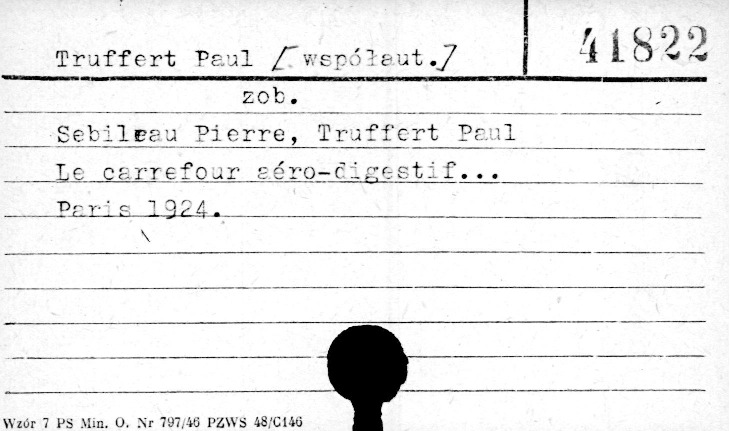 Truffert Paul [współaut.]
41822
zob.
Sebileau Pierre, Truffert Paul
Le carrefour aéro-digestif...
Paris 1924.
Wzór 7 PS Min. O. Nr 797/46 PZWS 48/C146